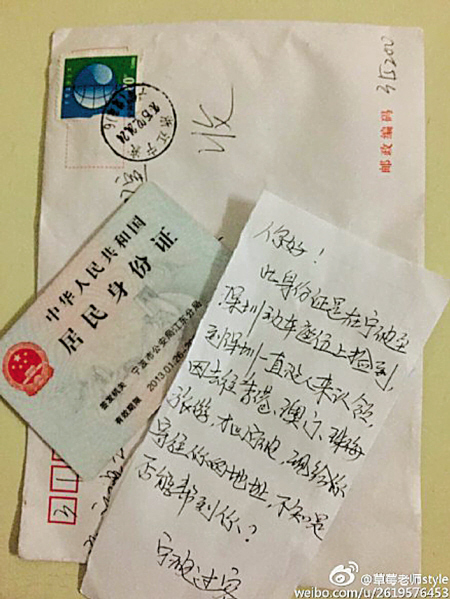 315200
邮政编码
收
中华人民共和国
居民身份证
签发机关 宁波市公安局江东分局
有效期限 2013.01.26-20
你好!
此身份证是在宁波至
深圳动车座位上捡到,
到深圳一直没人来认领,
因去往香港、澳门、珠海
旅游,才回宁波,现给你
寄往你的地址,不知是
否能帮到你?
宁波过客
@草莓老师style
weibo.com/u/2619576453